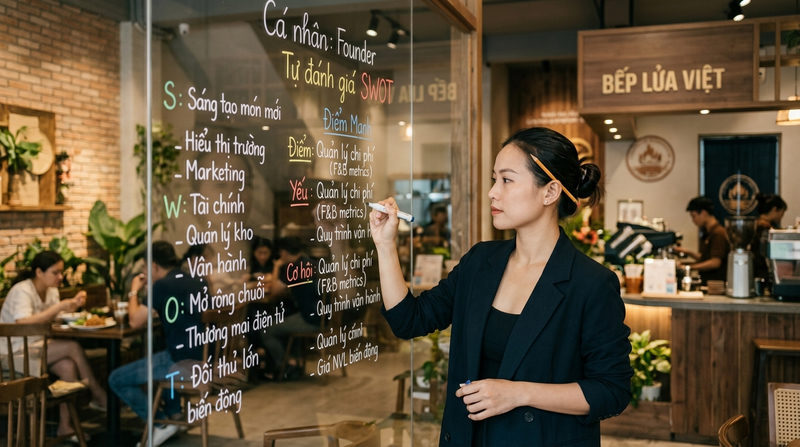 Cá nhân: Founder
Tự đánh giá SWOT
S: Sáng tạo món mới
- Hiểu thị trường
- Marketing
W: Tài chính
- Quản lý kho
- Vận hành
O: Mở rộng chuỗi
- Thương mại điện tử
T: Đối thủ lớn
biến động
Điểm Mạnh
Điểm: Quản lý chi phí
(F&B metrics)
Yếu: Quản lý chi phí
(F&B metrics)
- Quy trình vận
Cơ hội: Quản lý chi phí
(F&B metrics)
- Quy trình vận hành
- Quản lý chính
- Giá NVL biến động
BẾP LỬA VIỆT
BẾP LỬA